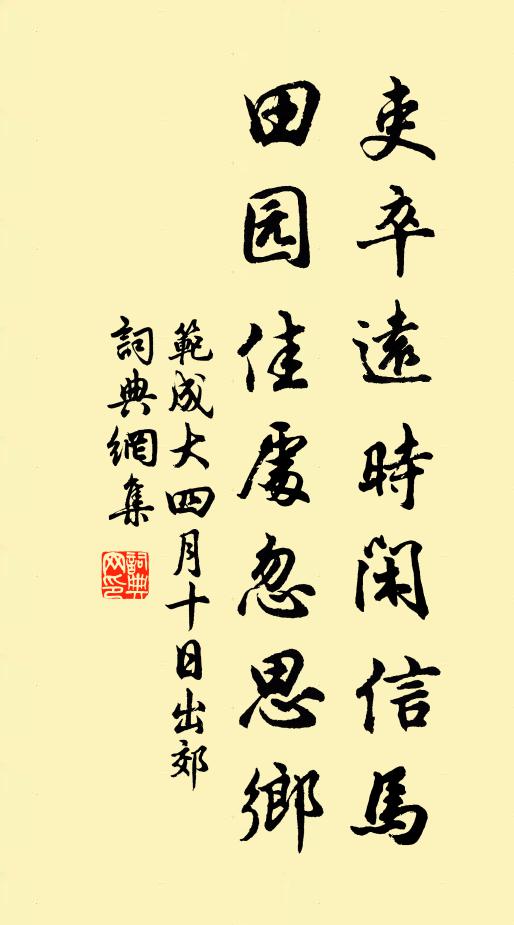 吏卒遠時閑信馬
田园佳處忽思鄉
範成大四月十日出郊
詞典網集
詞典網印